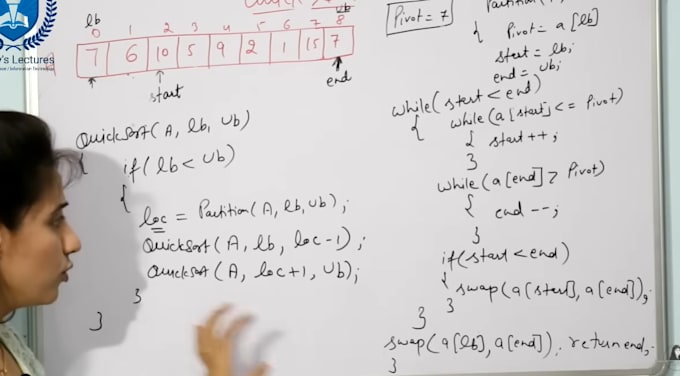 y's Lectures
lb
ub
0 1 2 3 4 5 6 7 8
7 6 10 5 9 2 1 15 7
start
end
QuickSort(A, lb, ub)
{
if(lb < ub)
{
loc = Partition(A, lb, ub);
QuickSort(A, lb, loc-1);
QuickSort(A, loc+1, ub);
}
}
Pivot = 7
{ Pivot = a[lb]
start = lb;
end = ub;
while(start < end)
{ while(a[start] <= Pivot)
{ start++;
}
while(a[end] > Pivot)
{ end--;
}
if(start < end)
{ swap(a[start], a[end]);
}
}
swap(a[lb], a[end]); return end;
}